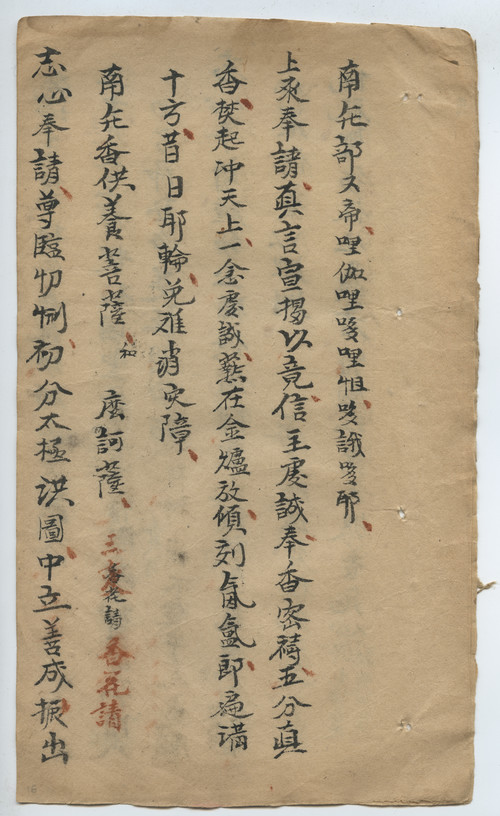 南無部又帝哩伽哩哆哩怛哆誐哆耶
上來奉請真言宣揚以竟信主虔誠奉香密禱五分真
香焚起冲天上一念虔誠爇在金爐放傾刻氤氳即遍滿
十方昔日耶輪免难消灾障
南無香供養菩薩 和 摩訶薩 香花請 香花請
志心奉請尊臨切惻初分太極洪圖中立善成振出